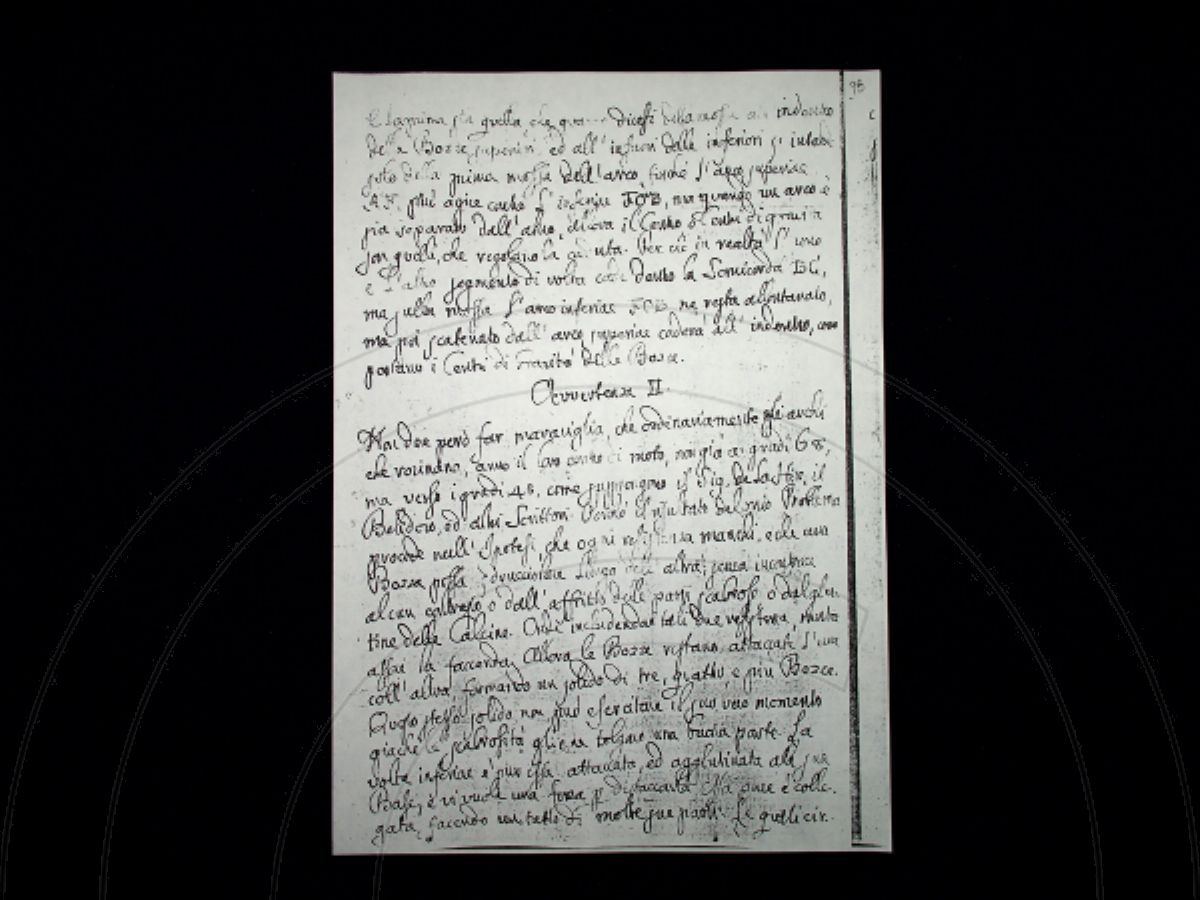 98
E la prima sia quella, che dicesi della mossa indentro
della Bozze superiori, ed all' infuori delle inferiori si intende
solo della prima mossa dell'arco, finché l'arco superiore
può agire contro l'inferiore, ma quando un arco è
sia separato dall'altro, allora il Centro di gravità
son quelli, che regolano la caduta. Per ciò in realtà l'uno
e l'altro segmento di volta cade dentro la Semicorda
ma sulla mossa l'arco inferiore ne resta allontanato,
ma poi scatenato dall'arco superiore caderà all'indentro, come
portano i Centri di Gravità delle Bozze.
Avvertenza II.
Non dee però far maraviglia, che ordinariamente gli archi
che rovinano, anno il loro centro di moto, non già ai gradi 68,
ma verso i gradi 45, come suppongono il Sig. de La Hire, il
Belidoro, ed altri Scrittori. Perchè il risultato del mio Problema
procede nell'Ipotesi, che ogni resistenza manchi, e che una
Bozza possa sdrucciolare lungo dell'altra, senza incontrare
alcun ostacolo o dall'affritto delle parti scabrose, o dal glu-
tine delle Calcine. Ora includendosi tali due resistenze, muta
assai la faccenda. Allora le Bozze restano attaccate l'una
coll'altra, formando un solido di tre, quattro, e più Bozze.
Questo stesso solido non può esercitare il suo vero momento
giachè la scabrosità gliene toglie una buona parte. La
volta inferiore è pur essa attaccata, ed agglutinata alle sue
Basi, e vi vuole una forza p distaccarla. Essa pure è colle-
gata, facendo un tutto di molte sue parti. Le quali cir-